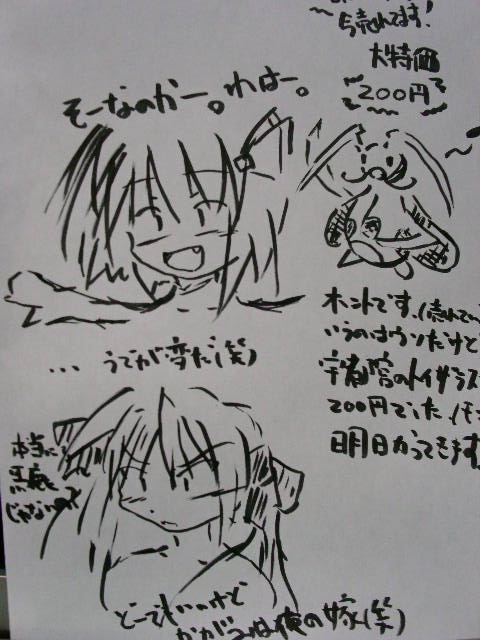 今売れてます！
大特価
200円
そーなのかー。わはー。
ホントです。(売れてっ
いうのはウソだけど
のトイザラス
200円でした。
明日かってきます
... うでが変だ(笑)
本当に
馬鹿
じゃないの
どーでもいいけど
かがみは俺の嫁(笑)